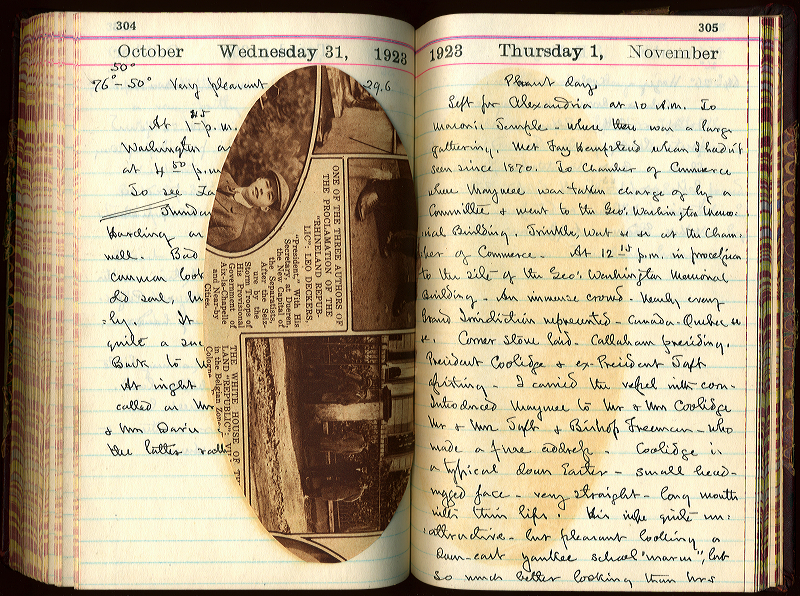 304
October Wednesday 31, 1923
50°
76° - 50° Very pleasant 29.6
At 1 15 p.m.
Washington a
at 4 50 p.m
To see
Sunda
Harding a
well. Bad
common look
old soul, h
ly. It
quite a suc
Back to
At night
called on Mr
& Mrs Davi
the latter rath
ONE OF THE THREE AUTHORS OF
THE PROCLAMATION OF THE
"RHINELAND REPUB-
LIC": LEO DECKERS,
"President," With His
Secretary, at Dueren,
the New Capital of
the Separatists,
After the Seiz-
ure by the
Storm Troops of
His Provisional
Government of
Aix-la-Chapelle
and Near-by
Cities.
THE WHITE HOUSE OF T
LAND "REPUBLIC": VI
in the Belgian Zone
Cologne
305
1923 Thursday 1, November
Pleasant day.
Left for Alexandria at 10 A.m. To
masonic Temple - where there was a large
gathering. Met Fay Hempstead whom I hadn't
seen since 1870. To Chamber of Commerce
where Maynee was taken charge of by a
Committee & went to the Geo. Washington Memo-
rial Building. Trinkle, West at the Cham-
ber of Commerce. At 12 15 p.m. in procession
to the Site of the Geo. Washington Memorial
Building - An immense crowd - Nearly every
Grand Jurisdiction represented - Canada - Quebec &
&. Corner Stone laid - Callahan presiding.
President Coolidge & ex-President Taft
assisting - I carried the vessel with corn-
Introduced Maynee to Mr & Mrs Coolidge
Mr & Mrs Taft & Bishop Freeman - who
made a fine address - Coolidge is
a typical down Easter - small head-
rugged face - very straight - long mouth
with thin lips. His wife quite un:
:attractive - but pleasant looking a
Down-east yankee school "marm", but
so much better looking than Mrs